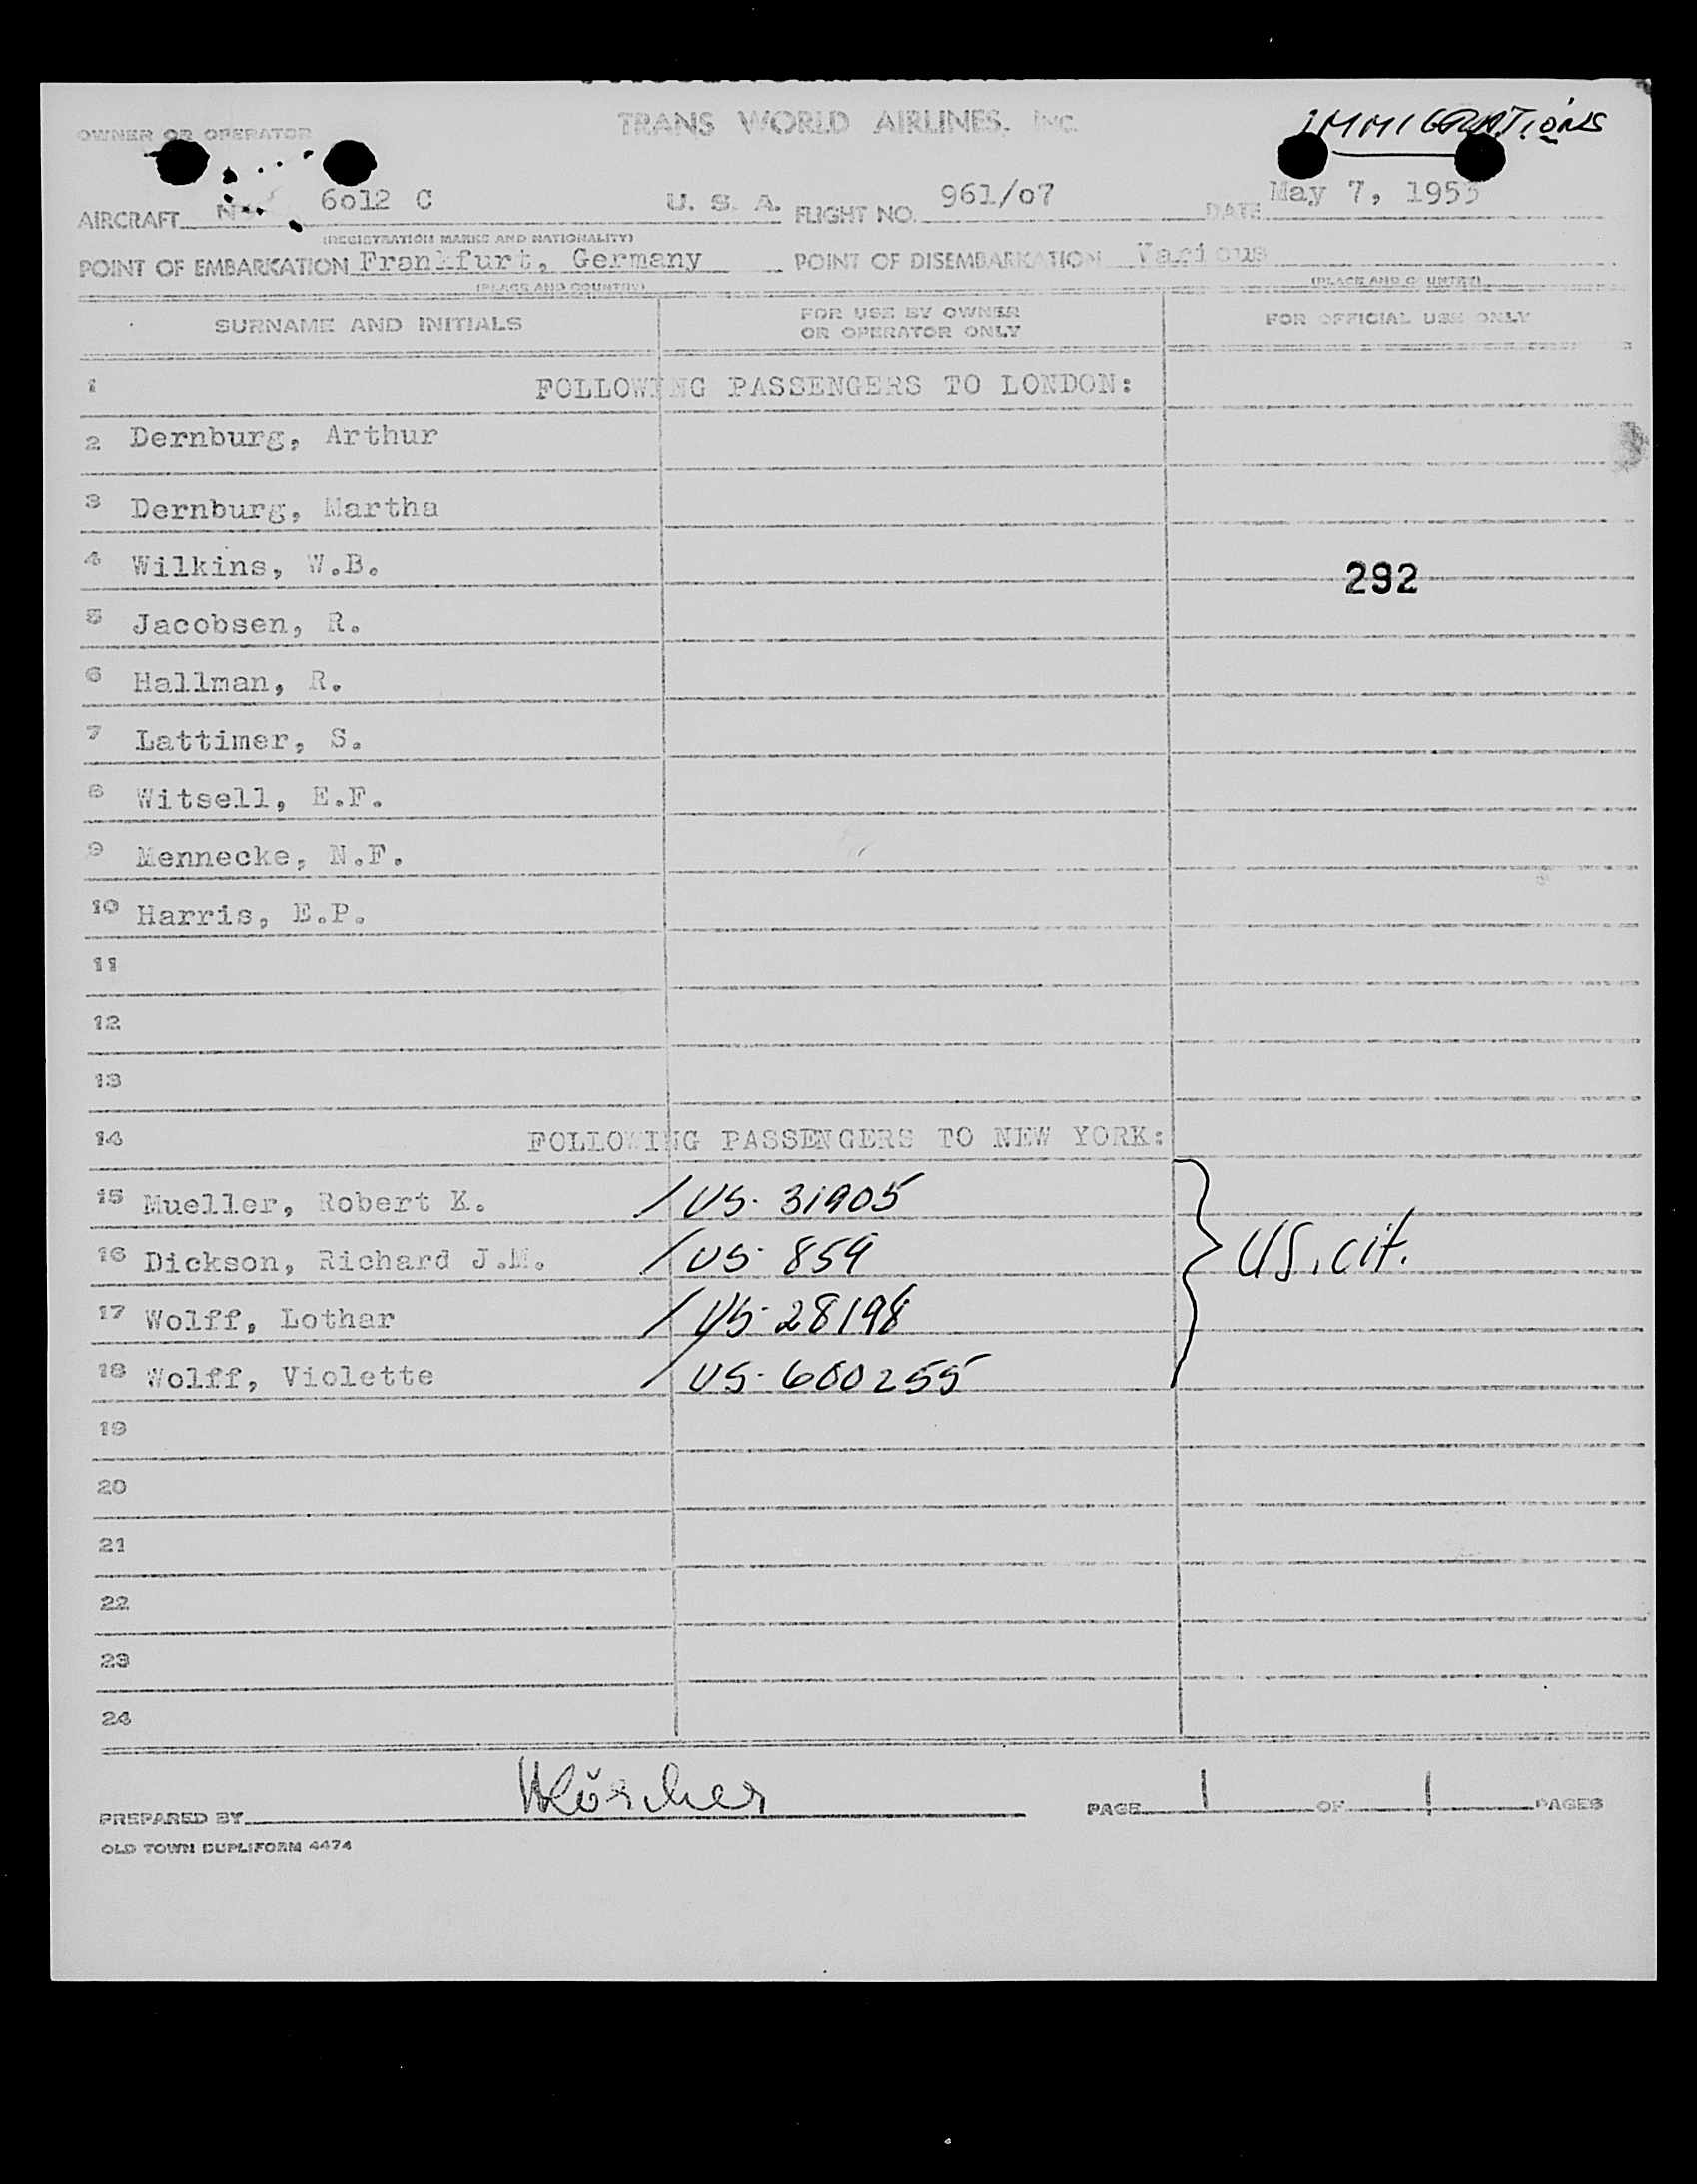 OWNER OR OPERATOR TRANS WORLD AIRLINES, INC. IMMIGRATIONS
AIRCRAFT N 6o12 C U. S. A. FLIGHT NO. 961/o7 DATE May 7, 1953
(REGISTRATION MARKS AND NATIONALITY)
POINT OF EMBARKATION Frankfurt, Germany POINT OF DISEMBARKATION Various
(PLACE AND COUNTRY) (PLACE AND COUNTRY)
SURNAME AND INITIALS FOR USE BY OWNER OR OPERATOR ONLY FOR OFFICIAL USE ONLY
1 FOLLOWING PASSENGERS TO LONDON:
2 Dernburg, Arthur
3 Dernburg, Martha
4 Wilkins, W.B. 292
5 Jacobsen, R.
6 Hallman, R.
7 Lattimer, S.
8 Witsell, E.F.
9 Mennecke, N.F.
10 Harris, E.P.
11
12
13
14 FOLLOWING PASSENGERS TO NEW YORK:
15 Mueller, Robert K. / US- 31905
16 Dickson, Richard J.M. / US- 859 US. cit.
17 Wolff, Lothar / US- 28198
18 Wolff, Violette / US- 600255
19
20
21
22
23
24
PREPARED BY PAGE 1 OF 1 PAGES
OLD TOWN DUPLIFORM 4474